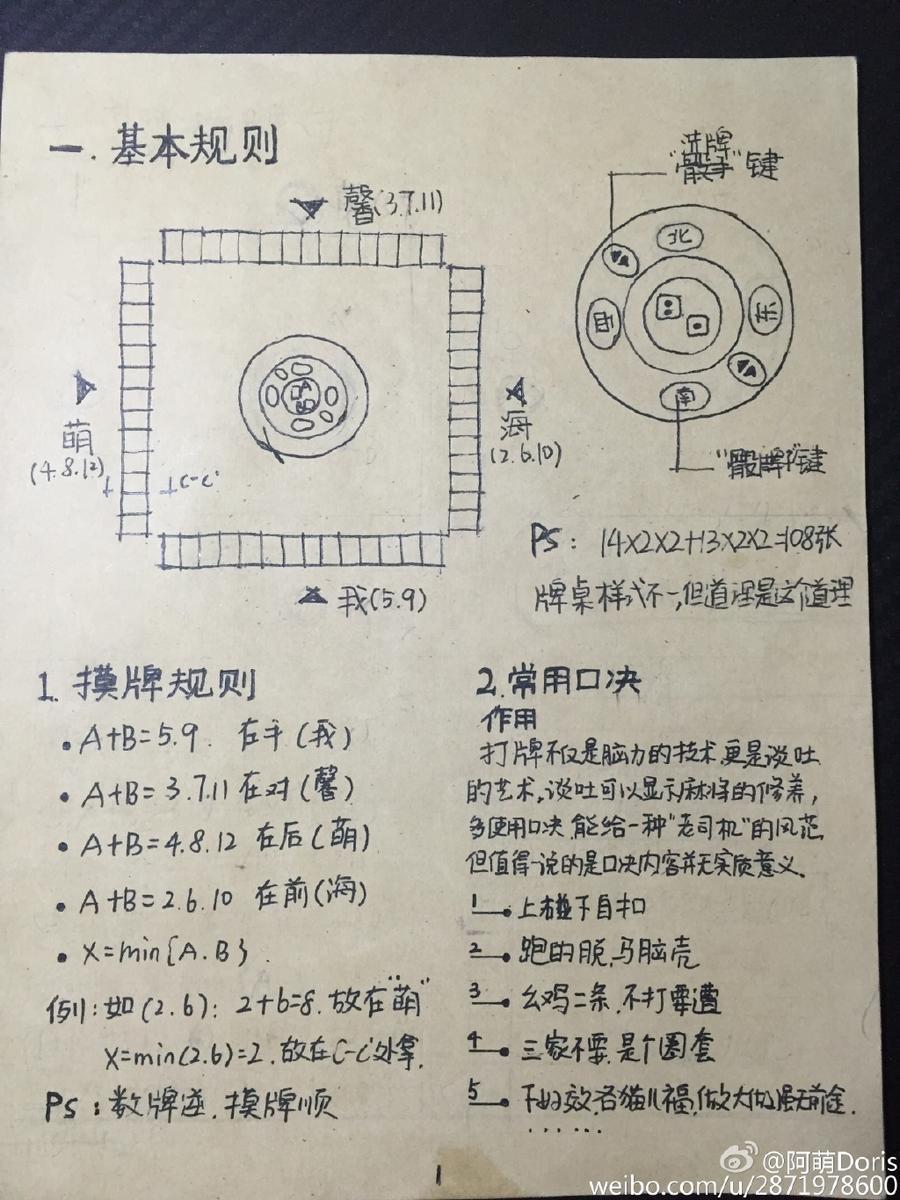 一.基本规则
馨(3.7.11)
萌
(4.8.12)
C-C'
海
(2.6.10)
我(5.9)
A
B
"洗牌"键
北
西
东
南
键
PS: 14×2×2+13×2×2=108张
牌桌样式不一,但道理是这个道理
1.摸牌规则
• A+B=5.9. 在手(我)
• A+B=3.7.11 在对(馨)
• A+B=4.8.12 在后(萌)
• A+B=2.6.10 在前(海)
• X=min{A.B}.
例:如(2.6): 2+6=8.放在"萌"
X=min(2.6)=2.放在C-C'处拿.
Ps:数牌逆.摸牌顺
2.常用口决
作用
打牌不仅是脑力的技术.更是谈吐
的艺术,谈吐可以显示麻将的修养,
多使用口决.能给一种"老司机"的风范.
但值得一说的是口决内容并无实质意义.
1 上碰下自扣
2 跑的脱,马脑壳
3 幺鸡二条,不打要遭
4 三家不要.是个圈套
5 做大做强无前途.
......
1
@阿萌Doris
weibo.com/u/2871978600